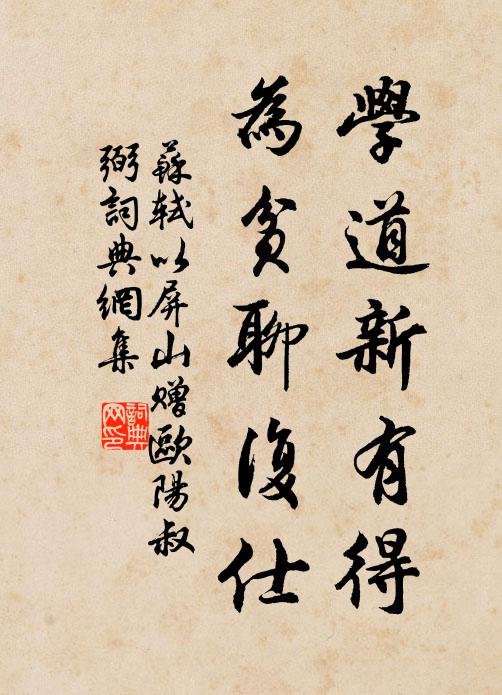 學道新有得
為貧聊復仕
蘇軾以屏山贈歐陽叔
弼詞典網集
詞典网印